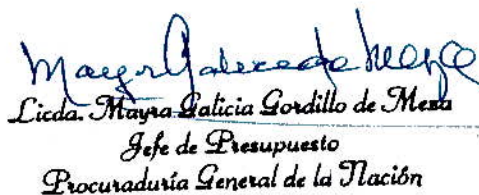 Mayra Galicia de Meza
Licda. Mayra Galicia Gordillo de Meza
Jefe de Presupuesto
Procuraduría General de la Nación